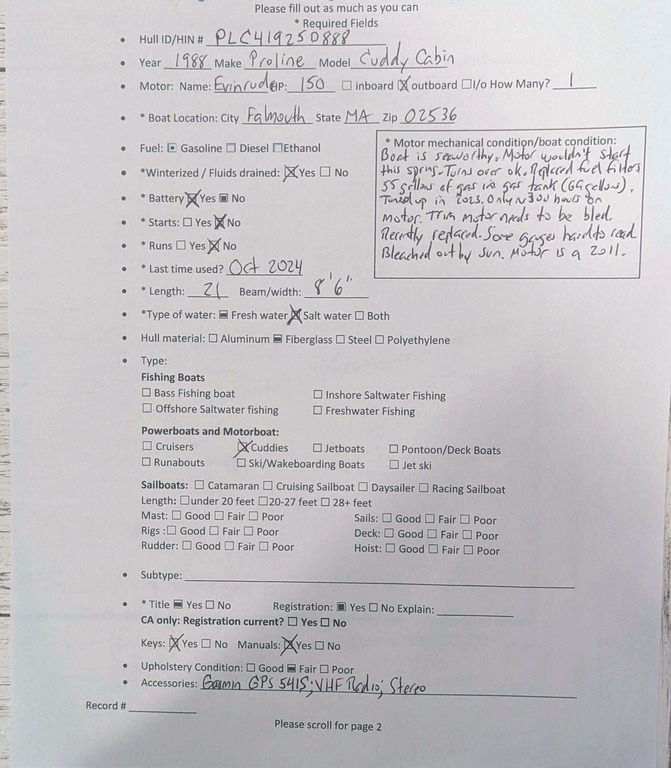 Please fill out as much as you can
* Required Fields
• Hull ID/HIN # PLC419250888
• Year 1988 Make Proline Model Cuddy Cabin
• Motor: Name: Evinrude HP: 150 ☐ inboard ☒ outboard ☐ I/o How Many? 1
• * Boat Location: City Falmouth State MA Zip 02536
• Fuel: ☒ Gasoline ☐ Diesel ☐ Ethanol
• *Winterized / Fluids drained: ☒ Yes ☐ No
• * Battery ☒ Yes ☒ No
• * Starts: ☐ Yes ☒ No
• * Runs ☐ Yes ☒ No
• * Last time used? Oct 2024
• * Length: 21 Beam/width: 8'6"
* Motor mechanical condition/boat condition:
Boat is seaworthy. Motor wouldn't start
this spring. Turns over ok. Replaced fuel filters
55 gallons of gas in gas tank (66 gallons).
Tuned up in 2023. Only ~300 hours on
motor. Trim motor needs to be bled.
Recently replaced. Some gauges hard to read
Bleached out by sun. Motor is a 2011.
• *Type of water: ☒ Fresh water ☒ Salt water ☐ Both
• Hull material: ☐ Aluminum ☒ Fiberglass ☐ Steel ☐ Polyethylene
• Type:
Fishing Boats
☐ Bass Fishing boat ☐ Inshore Saltwater Fishing
☐ Offshore Saltwater fishing ☐ Freshwater Fishing
Powerboats and Motorboat:
☐ Cruisers ☒ Cuddies ☐ Jetboats ☐ Pontoon/Deck Boats
☐ Runabouts ☐ Ski/Wakeboarding Boats ☐ Jet ski
Sailboats: ☐ Catamaran ☐ Cruising Sailboat ☐ Daysailer ☐ Racing Sailboat
Length: ☐ under 20 feet ☐ 20-27 feet ☐ 28+ feet
Mast: ☐ Good ☐ Fair ☐ Poor Sails: ☐ Good ☐ Fair ☐ Poor
Rigs : ☐ Good ☐ Fair ☐ Poor Deck: ☐ Good ☐ Fair ☐ Poor
Rudder: ☐ Good ☐ Fair ☐ Poor Hoist: ☐ Good ☐ Fair ☐ Poor
• Subtype:
• * Title ☒ Yes ☐ No Registration: ☒ Yes ☐ No Explain:
CA only: Registration current? ☐ Yes ☐ No
Keys: ☒ Yes ☐ No Manuals: ☒ Yes ☐ No
• Upholstery Condition: ☐ Good ☒ Fair ☐ Poor
• Accessories: Garmin GPS 541S; VHF Radio; Stereo
Record #
Please scroll for page 2